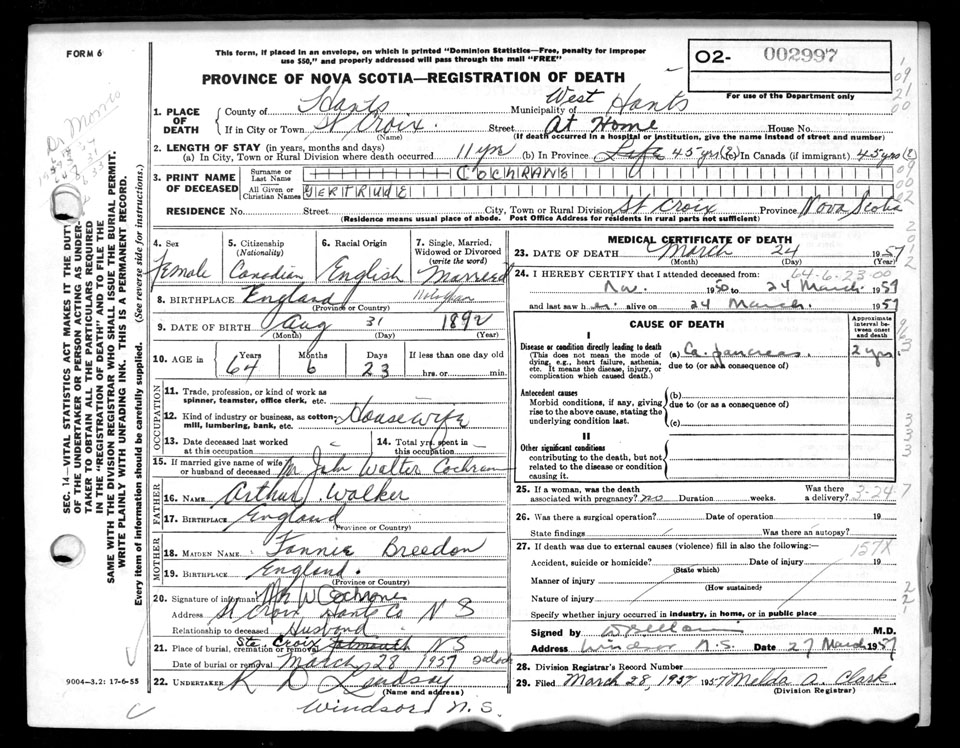 FORM 6
This form, if placed in an envelope, on which is printed "Dominion Statistics—Free, penalty for improper
use $50," and properly addressed will pass through the mail "FREE"
PROVINCE OF NOVA SCOTIA—REGISTRATION OF DEATH
02- 002997
For use of the Department only
1. PLACE OF DEATH
County of Hants Municipality of West Hants
If in City or Town St Croix. Street At Home House No.
(Name) (If death occurred in a hospital or institution, give the name instead of street and number)
2. LENGTH OF STAY (in years, months and days)
(a) In City, Town or Rural Division where death occurred 11 yrs (b) In Province Life 45 yrs(?) (c) In Canada (if immigrant) 45 yrs (?)
3. PRINT NAME OF DECEASED
Surname or Last Name COCHRANE
All Given or Christian Names GERTRUDE
RESIDENCE No. Street City, Town or Rural Division St Croix Province Nova Scotia
(Residence means usual place of abode. Post Office Address for residents in rural parts not sufficient)
4. Sex Female
5. Citizenship (Nationality) Canadian
6. Racial Origin English
7. Single, Married, Widowed or Divorced (write the word) Married
8. BIRTHPLACE England
(Province or Country)
9. DATE OF BIRTH Aug 31 1892
(Month) (Day) (Year)
10. AGE in Years 64 Months 6 Days 23 If less than one day old hrs. or min.
OCCUPATION
11. Trade, profession, or kind of work as spinner, teamster, office clerk, etc.
12. Kind of industry or business, as cotton-mill, lumbering, bank, etc. Housewife
13. Date deceased last worked at this occupation
14. Total yrs. spent in this occupation
15. If married give name of wife or husband of deceased Mr John Walter Cochran
FATHER
16. NAME Arthur Walker
17. BIRTHPLACE England
(Province or Country)
MOTHER
18. MAIDEN NAME Fannie Breedon
19. BIRTHPLACE England.
(Province or Country)
20. Signature of informant W Cochrane
Address St Croix Hants Co N S
Relationship to deceased Husband
21. Place of burial, cremation or removal Ste Croix Falmouth N S
Date of burial or removal March 28 1957
22. UNDERTAKER K D Lindsay
(Name and address)
Windsor N.S.
9004-3.2: 17-6-55
MEDICAL CERTIFICATE OF DEATH
23. DATE OF DEATH March 24 1957
(Month) (Day) (Year)
64-6-23-00
24. I HEREBY CERTIFY that I attended deceased from:
Nov. 1950 to 24 March. 1957
and last saw her alive on 24 March. 1957
CAUSE OF DEATH
Approximate interval between onset and death
I
Disease or condition directly leading to death
(This does not mean the mode of dying, e.g., heart failure, asthenia, etc. It means the disease, injury, or complication which caused death.)
(a) Ca. pancreas. 2 yrs
due to (or as a consequence of)
Antecedent causes
Morbid conditions, if any, giving rise to the above cause, stating the underlying condition last.
(b)
due to (or as a consequence of)
(c)
II
Other significant conditions
contributing to the death, but not related to the disease or condition causing it.
25. If a woman, was the death associated with pregnancy? no Duration weeks. Was there a delivery? 3-24-7
26. Was there a surgical operation? Date of operation 19
State findings Was there an autopsy?
27. If death was due to external causes (violence) fill in also the following:—
157X
Accident, suicide or homicide? Date of injury 19
(State which)
Manner of injury
(How sustained)
Nature of injury
Specify whether injury occurred in industry, in home, or in public place
Signed by M.D.
Address Windsor N.S. Date 27 March 1957
28. Division Registrar's Record Number
29. Filed March 28, 1957 1957 Melda A. Clark
(Division Registrar)
SEC. 14—VITAL STATISTICS ACT MAKES IT THE DUTY
OF THE UNDERTAKER OR PERSON ACTING AS UNDER-
TAKER TO OBTAIN ALL THE PARTICULARS REQUIRED
IN THE "REGISTRATION OF DEATH" AND TO FILE THE
SAME WITH THE DIVISION REGISTRAR WHO SHALL ISSUE THE BURIAL PERMIT.
WRITE PLAINLY WITH UNFADING INK. THIS IS A PERMANENT RECORD.
Every item of information should be carefully supplied. (See reverse side for instructions.)